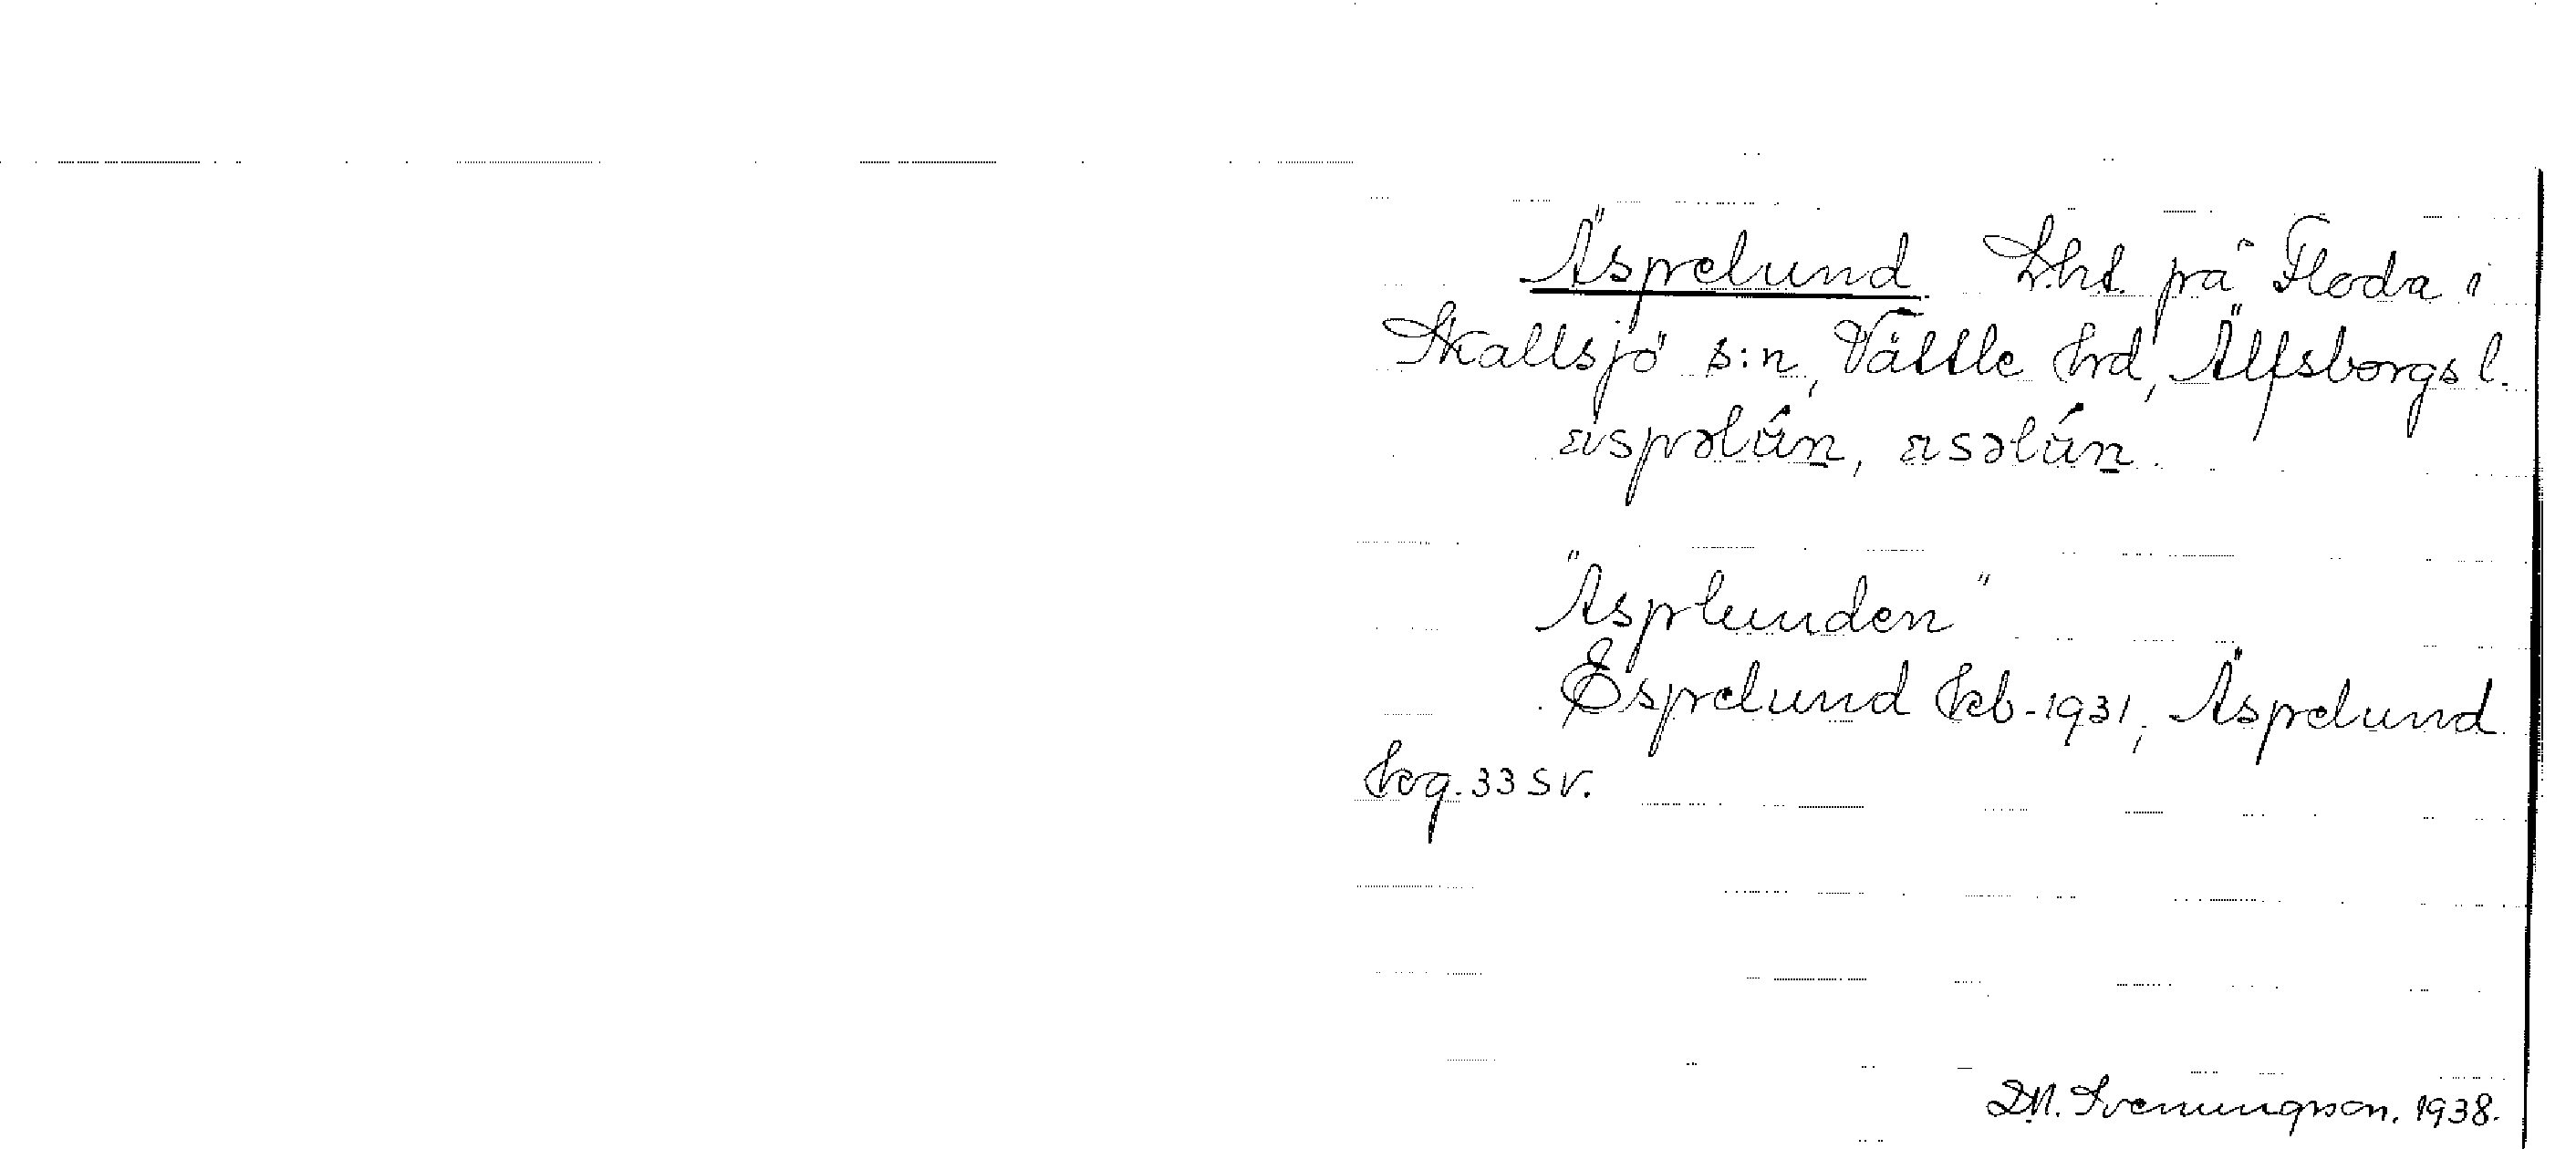 Äspelund Lht. på Floda i
Skallsjö s:n, Vättle hrd, Älfsborgs l.
äspəlún, äsəlún.
"Äsplunden"
Espelund kb-1931, Äspelund
log. 33 SV.
D.M. Svenungson. 1938.